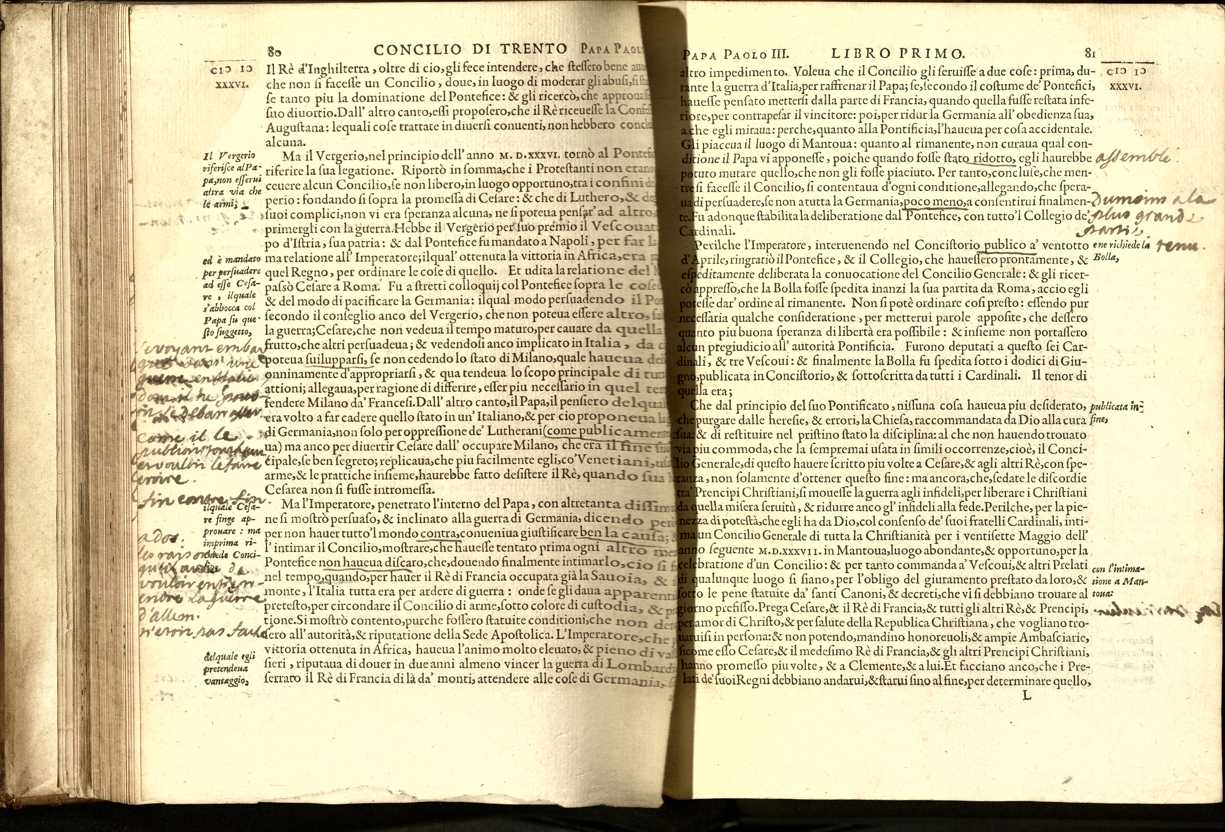 80 CONCILIO DI TRENTO PAPA PAOL
CIƆ IƆ
XXXVI.
Il Rè d'Inghilterra, oltre di cio, gli fece intendere, che stessero bene
che non si facesse un Concilio, doue, in luogo di moderar gli abusi,
se tanto piu la dominatione del Pontefice: & gli ricercò, che
suo diuortio. Dall' altro canto, essi proposero, che il Rè riceuesse la
Augustana: lequali cose trattate in diuersi conuenti, non hebbero
alcuna.
Il Vergerio
riferisce al Pa-
pa, non esserui
altra via che
le armi;
Ma il Vergerio, nel principio dell' anno M. D. XXXVI. tornò al
riferire la sua legatione. Riportò in somma, che i Protestanti non
ceuere alcun Concilio, se non libero, in luogo opportuno, tra i confini
perio: fondando si sopra la promessa di Cesare: & che di Luthero, &
suoi complici, non vi era speranza alcuna, ne si poteua pensar' ad
primergli con la guerra. Hebbe il Vergerio per suo premio il
po d'Istria, sua patria: & dal Pontefice fu mandato a Napoli, per far
ed è mandato
per persuadere
ad esse Cesa-
re, ilquale
s'abbocca col
Papa su que-
sto suggetto,
ma relatione all' Imperatore; ilqual' ottenuta la vittoria in Africa,
quel Regno, per ordinare le cose di quello. Et udita la relatione del
passò Cesare a Roma. Fu a stretti colloquij col Pontefice sopra le
& del modo di pacificare la Germania: ilqual modo persuadendo il
secondo il conseglio anco del Vergerio, che non poteua essere altro,
la guerra; Cesare, che non vedeua il tempo maturo, per cauare da quella
frutto, che altri persuadeua; & vedendosi anco implicato in Italia, da
poteua suilupparsi, se non cedendo lo stato di Milano, quale haueua
onninamente d'appropriarsi, & qua tendeua lo scopo principale di
attioni; allegaua, per ragione di differire, esser piu necessario in quel
fendere Milano da' Francesi. Dall' altro canto, il Papa, il pensiero del
era volto a far cadere quello stato in un' Italiano, & per cio proponeua
di Germania, non solo per oppressione de' Lutherani (come
ua) ma anco per diuertir Cesare dall' occupare Milano, che era il fine
tipale, se ben segreto; replicaua, che piu facilmente egli, co' Venetiani,
arme, & le prattiche insieme, haurebbe fatto desistere il Rè, quando
Cesarea non si fusse intromessa.
ilquale Cesa-
re finge ap-
prouare: ma
imprima ri-
chiede Conci-
Ma l'Imperator, penetrato l'interno del Papa, con altretanta
ne si mostrò persuaso, & inclinato alla guerra di Germania, dicendo
per non hauer tutto'l mondo contra, conueniua giustificare ben la causa:
l' intimar il Concilio, mostrare, che hauesse tentato prima ogni altro
Pontefice non haueua discaro, che, douendo finalmente intimarlo, cio
nel tempo, quando, per hauer il Rè di Francia occupata già la Sauoia, &
monte, l'Italia tutta era per ardere di guerra: onde se gli daua
pretesto, per circondare il Concilio di arme, sotto colore di custodia, &
tione. Si mostrò contento, purche fossero statuite conditioni, che non
sero all' autorità, & riputatione della Sede Apostolica. L'Imperatore,
vittoria ottenuta in Africa, haueua l'animo molto eleuato, & pieno di
delquale egli
pretendeua
vantaggio,
sieri, riputaua di douer in due anni almeno vincer la guerra di
serrato il Rè di Francia di là da' monti, attendere alle cose di Germania,
PAPA PAOLO III. LIBRO PRIMO. 81
CIƆ IƆ
XXXVI.
altro impedimento. Voleua che il Concilio gli seruisse a due cose: prima, du-
rante la guerra d'Italia, per raffrenar il Papa; se, secondo il costume de' Pontefici,
hauesse pensato mettersi dalla parte di Francia, quando quella fusse restata infe-
riore, per contrapesar il vincitore: poi, per ridur la Germania all' obedienza sua,
a che egli miraua: perche, quanto alla Pontificia, l'haueua per cosa accidentale.
Gli piaceua il luogo di Mantoua: quanto al rimanente, non curaua qual con-
ditione il Papa vi apponesse, poiche quando fosse stato ridotto, egli haurebbe
assemblé
potuto mutare quello, che non gli fosse piaciuto. Per tanto, concluse, che men-
tre si facesse il Concilio, si contentaua d'ogni conditione, allegando, che spera-
ua di persuadere, se non a tutta la Germania, poco meno, a consentirui finalmen-
Du moins a la
plus grande
partie
te. Fu adonque stabilita la deliberatione dal Pontefice, con tutto'l Collegio de'
Cardinali.
Perilche l'Imperatore, interuenendo nel Concistorio publico a' ventotto
e ne richiede la
Bolla,
tenu
d'Aprile, ringratiò il Pontefice, & il Collegio, che hauessero prontamente, &
espeditamente deliberata la conuocatione del Concilio Generale: & gli ricer-
cò appresso, che la Bolla fosse spedita inanzi la sua partita da Roma, accio egli
potesse dar' ordine al rimanente. Non si potè ordinare cosi presto: essendo pur
necessaria qualche consideratione, per metterui parole apposite, che dessero
quanto piu buona speranza di libertà era possibile: & insieme non portassero
alcun pregiudicio all' autorità Pontificia. Furono deputati a questo sei Car-
dinali, & tre Vescoui: & finalmente la Bolla fu spedita sotto i dodici di Giu-
gno, publicata in Concistorio, & sottoscritta da tutti i Cardinali. Il tenor di
quella era;
Che dal principio del suo Pontificato, nissuna cosa haueua piu desiderato,
publicata in-
fine,
che purgare dalle heresie, & errori, la Chiesa, raccommandata da Dio alla cura
sua: & di restituire nel pristino stato la disciplina: al che non hauendo trouato
via piu commoda, che la sempre mai usata in simili occorrenze, cioè, il Conci-
lio Generale, di questo hauere scritto piu volte a Cesare, & agli altri Rè, con spe-
ranza, non solamente d'ottener questo fine: ma ancora, che, sedate le discordie
tra' Prencipi Christiani, si mouesse la guerra agli infideli, per liberare i Christiani
da quella misera seruitù, & ridurre anco gl' infideli alla fede. Perilche, per la pie-
nezza di potestà, che egli ha da Dio, col consenso de' suoi fratelli Cardinali, inti-
ma un Concilio Generale di tutta la Christianità per i ventisette Maggio dell'
anno seguente M. D. XXXVII. in Mantoua, luogo abondante, & opportuno, per la
con l'intima-
tione a Man-
toua:
celebratione d'un Concilio: & per tanto commanda a' Vescoui, & altri Prelati
di qualunque luogo si siano, per l'obligo del giuramento prestato da loro, &
sotto le pene statuite da' santi Canoni, & decreti, che vi si debbiano trouare al
giorno prefisso. Prega Cesare, & il Rè di Francia, & tutti gli altri Rè, & Prencipi,
per amor di Christo, & per salute della Republica Christiana, che vogliano tro-
uaruisi in persona: & non potendo, mandino honoreuoli, & ampie Ambasciarie,
sicome esso Cesare, & il medesimo Rè di Francia, & gli altri Prencipi Christiani,
hanno promesso piu volte, & a Clemente, & a lui. Et facciano anco, che i Pre-
lati de' suoi Regni debbiano andarui, & starui sino al fine, per determinare quello,
L